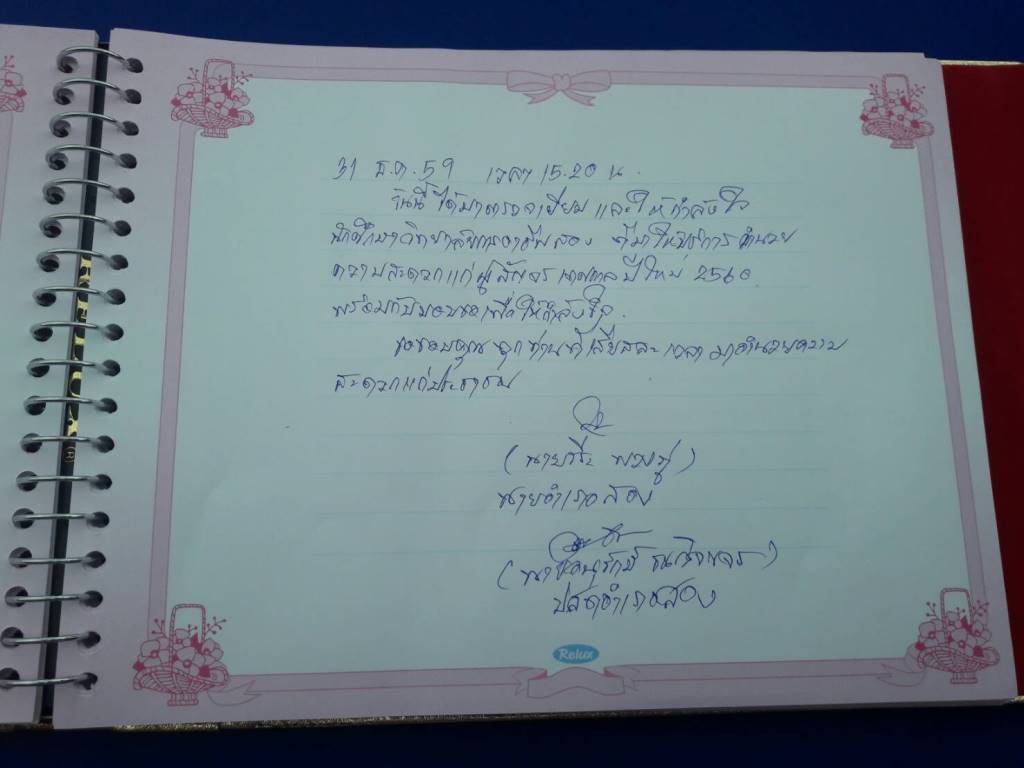 31 ธ.ค. 59 เวลา 15.20 น.
วันนี้ได้มาตรวจเยี่ยม และให้กำลังใจ
นักศึกษาวิทยาลัยการอาชีพสอง ที่มาให้บริการอำนวย
ความสะดวกแก่ผู้สัญจร เทศกาลปีใหม่ 2560
พร้อมกับมอบของเพื่อให้กำลังใจ
ขอขอบคุณทุกท่านที่เสียสละเวลา มาอำนวยความ
สะดวกแก่ประชาชน
(นาย
นายอำเภอสอง
ปลัดอำเภอสอง
Relux